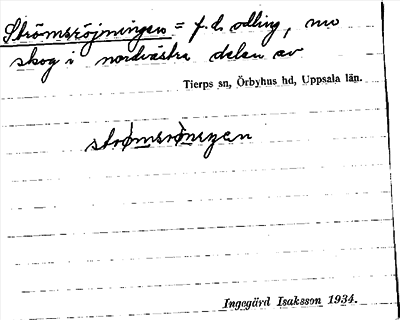 Strömsröjningen = f.d. odling, nu
skog i nordvästra delen av
Tierps sn, Örbyhus hd, Uppsala län.
Ingegärd Isaksson 1934.